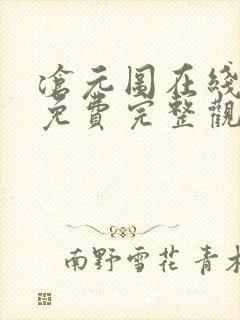 滄元图在綫
免費完整觀
南野雪花 青木